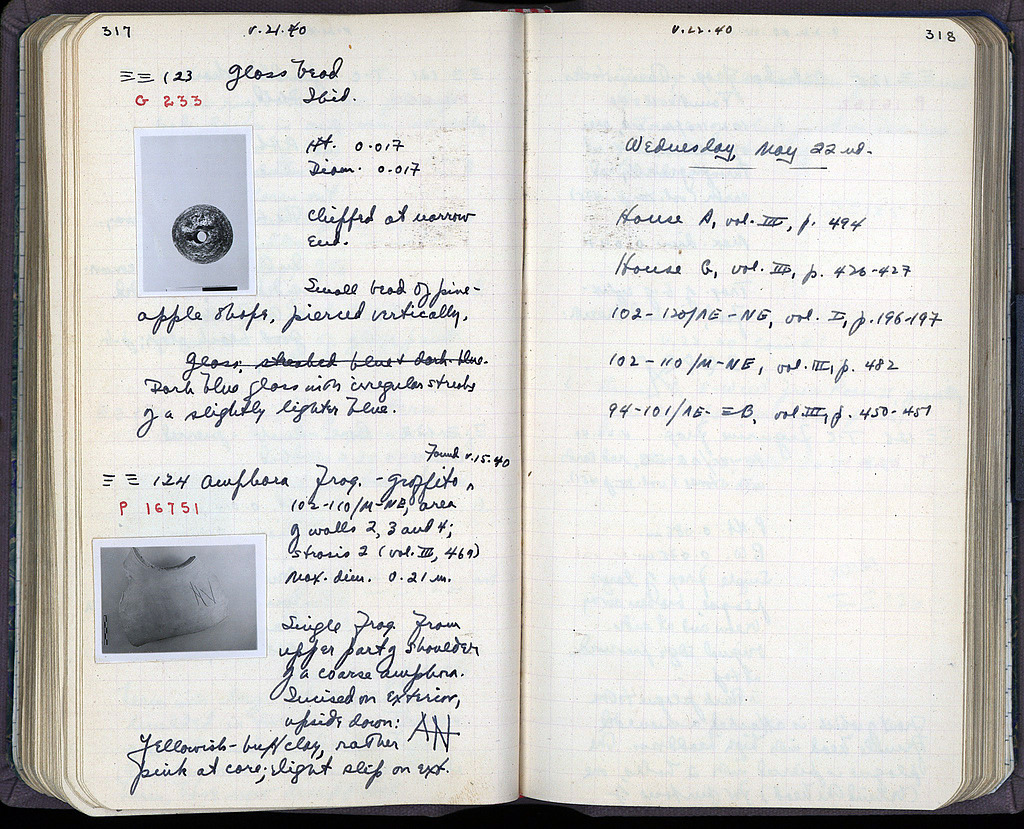 317
V.21.40
ΞΞ 123 Glass bead
G 233
Ibid.
Ht. 0.017
Diam. 0.017
Chipped at narrow
end.
Small bead of pine-
apple shape, pierced vertically.
Glass, streaked blue + dark blue.
Dark blue glass with irregular streaks
of a slightly lighter blue.
Found V.15.40
ΞΞ 124 Amphora Frag. - graffito
P 16751
102-110/M-NE, area
of walls 2, 3 and 4;
Strosis 2 (vol. III, 469)
Max. dim. 0.21 m.
Single frag. from
upper part of shoulder
of a coarse amphora.
Incised on exterior,
upside down: AN
Yellowish-buff clay, rather
pink at core; slight slip on ext.
V.22.40
318
Wednesday, May 22nd.
House A, vol. III, p. 494
House G, vol. III, p. 426-427
102-120/ΛE-NE, vol. I, p. 196-197
102-110/M-NE, vol. III, p. 482
94-101/ΛE-ΞB, vol. III, p. 450-451